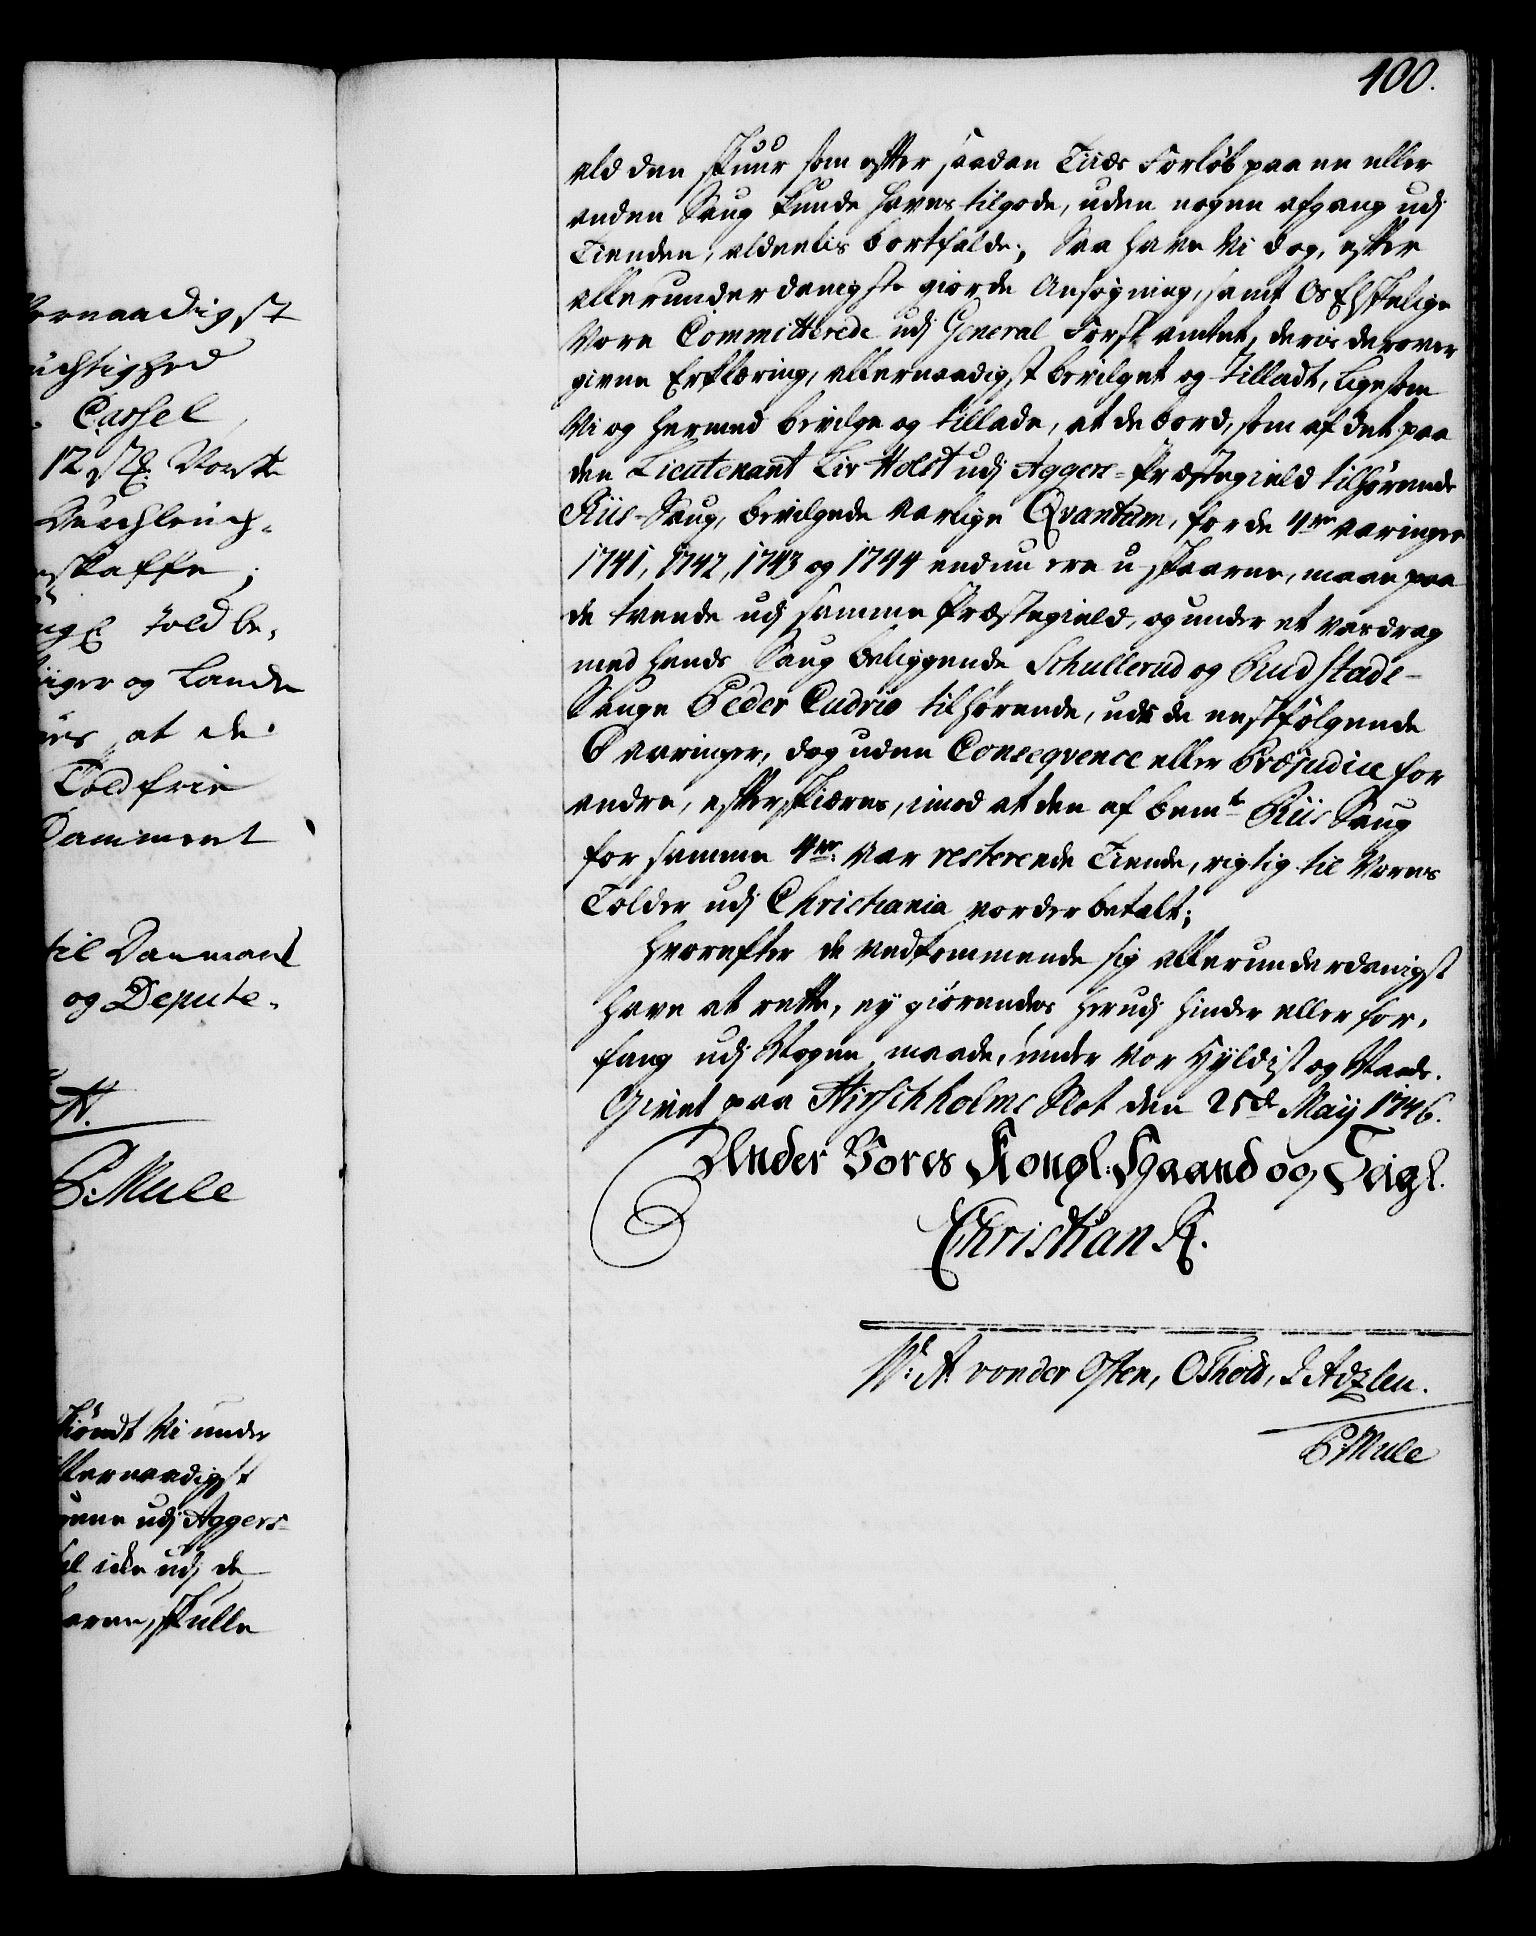 400.
ald den skuur som efter saadan Tiids Forløb paa en eller
anden Saug kunde haves tilgode, uden nogen afgang udj
Tienden, aldeelis bortfalde; Saa have Vi dog, efter
allerunderdanigste giorde Ansøgning, samt Os Elskelige
Vore Committerede udj General Forst amtet, deris derover
givne Erklæring, allernaadigst bevilget og tilladt, ligesom
Vi og hermed bevilge og tillade, at de bord, som af det paa
den Lieutenant Liv Holst udj Aggers-Præstegield tilhørende
Riis-Saug, bevilgede aarlige Qvantum, for de 4re aaringer
1741, 1742, 1743 og 1744 endnu ere u-skaarne, maae paa
de tvende udj samme Præstegield, og under et vasdrag
med hands Saug beliggende Schullerud og Budstade-
Sauge Peder Cudrio tilhørende, udi de nestfølgende
6 aaringer, dog uden Conseqvence eller Præjudice for
andre, efterskiæres, imod at den af bemte Riis Saug
for samme 4re Aar resterende Tiende, rigtig til Vores
Tolder udj Christiania vorder betalt;
Hvorefter de vedkommende sig allerunderdanigst
have at rette, ey giørendes herudj hinder eller for,
fang udj Nogen maade, under Vor Hyldist og Naade.
Givet paa Hirschholms Slot den 25de May 1746.
Under Vores Kongl: Haand og Seigl.
Christian R.
W: A: von der Osten, O Thott, J Adzlen.
P: Mule
ernaadigst
Cassel
12
Told be,
iger og Lande
at de
Told frie
til Danmark
og Depute-
P: Mule
Vi under
llernaadigst
udj Aggers-
ikke udj de
skulle